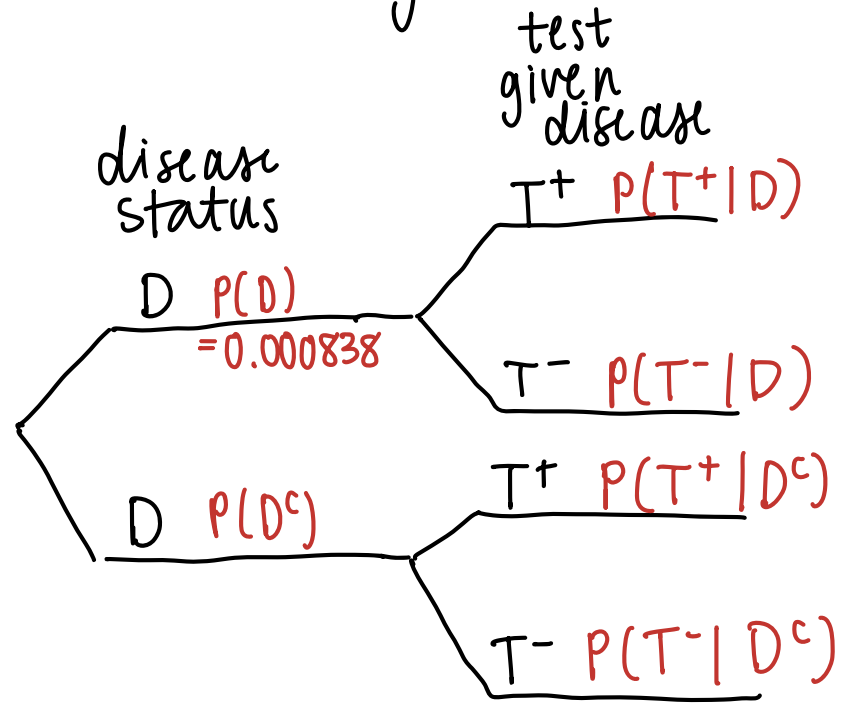 test
given
disease
disease
status
T⁺ P(T⁺|D)
D P(D)
=0.000838
T⁻ P(T⁻|D)
T⁺ P(T⁺|Dᶜ)
D P(Dᶜ)
T⁻ P(T⁻|Dᶜ)